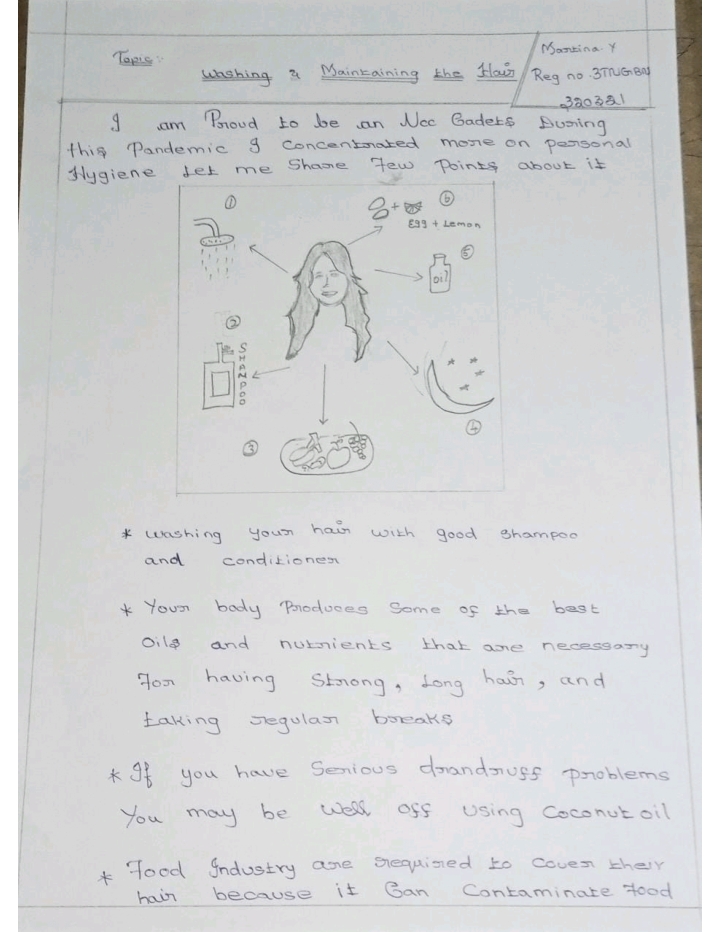 Topic:
Washing & Maintaining the Hair
Mantina. Y
Reg no. 3TNGBN
320321
I am Proud to be an Ncc Cadets During
this Pandemic I concentrated more on personal
Hygiene Let me Share Few Points about it
①
⑥
Egg + Lemon
⑤
oil
②
SHAMPOO
④
③
* Washing your hair with good shampoo
and conditioner
* Your body Produces Some of the best
Oils and nutrients that are necessary
For having Strong, Long hair, and
taking regular breaks
* If you have Serious drandruff problems
You may be well off Using Coconut oil
* Food Industry are required to Cover their
hair because it Can Contaminate Food